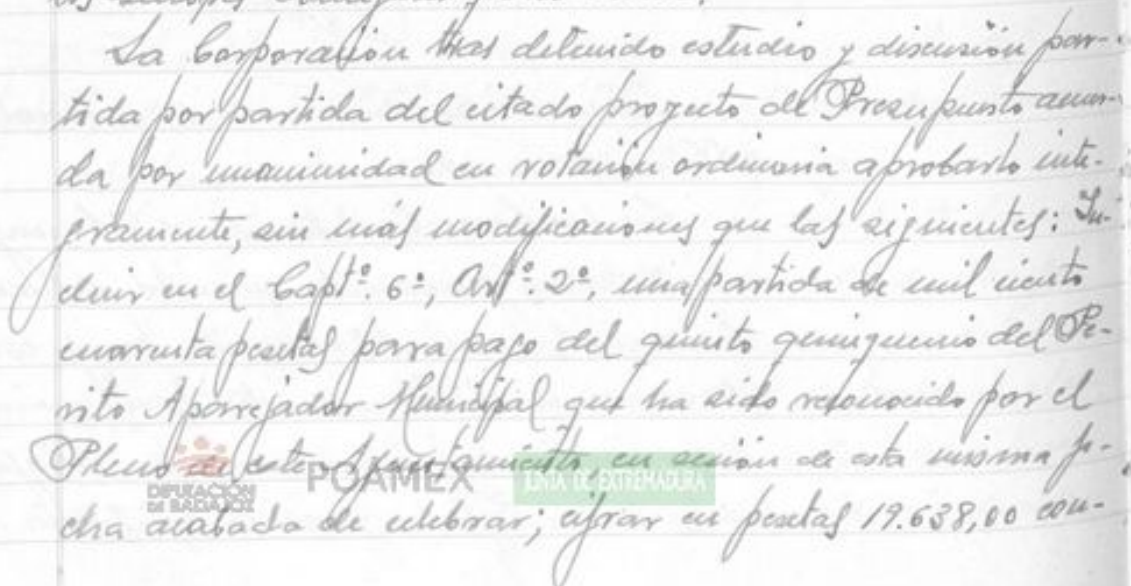 La Corporación tras detenido estudio y discusión par-
tida por partida del citado proyecto de Presupuesto acuer-
da por unanimidad en votación ordinaria aprobarlo inte-
gramente, sin más modificaciones que las siguientes: In-
cluir en el Captº. 6º, Artº. 2º, una partida de mil ciento
cuarenta pesetas para pago del quinto quinquenio del Pe-
rito Aparejador Municipal que ha sido reconocido por el
Pleno de este Ayuntamiento, en sesión de esta misma fe-
cha acabada de celebrar; cifrar en pesetas 19.638,00 con-
DIPUTACIÓN DE BADAJOZ
POAMEX
JUNTA DE EXTREMADURA